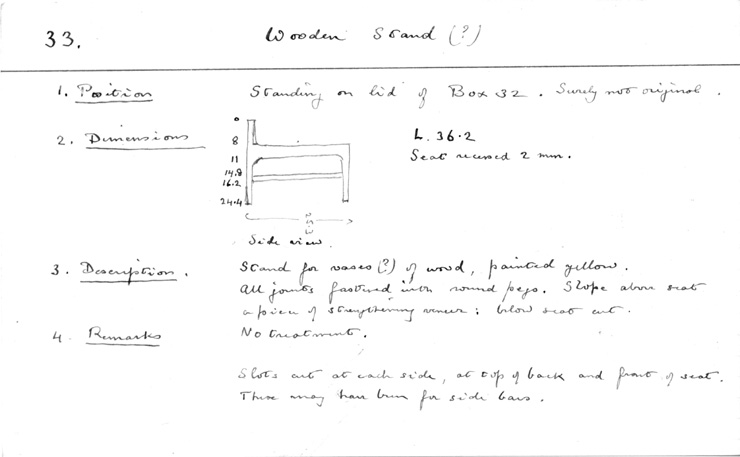 33. Wooden Stand (?)
1. Position Standing on lid of Box 32. Surely not original.
2. Dimensions
0
8
11
14.8
16.2
24.4
L. 36.2
Seat recessed 2 mm.
Side view.
3. Description. Stand for vases (?) of wood, painted yellow.
All joints fastened with round pegs. Slope above seat
a piece of strengthening veneer; below seat cut.
4. Remarks No treatment.
Slots cut at each side, at top of back and front of seat.
These may have been for side bars.